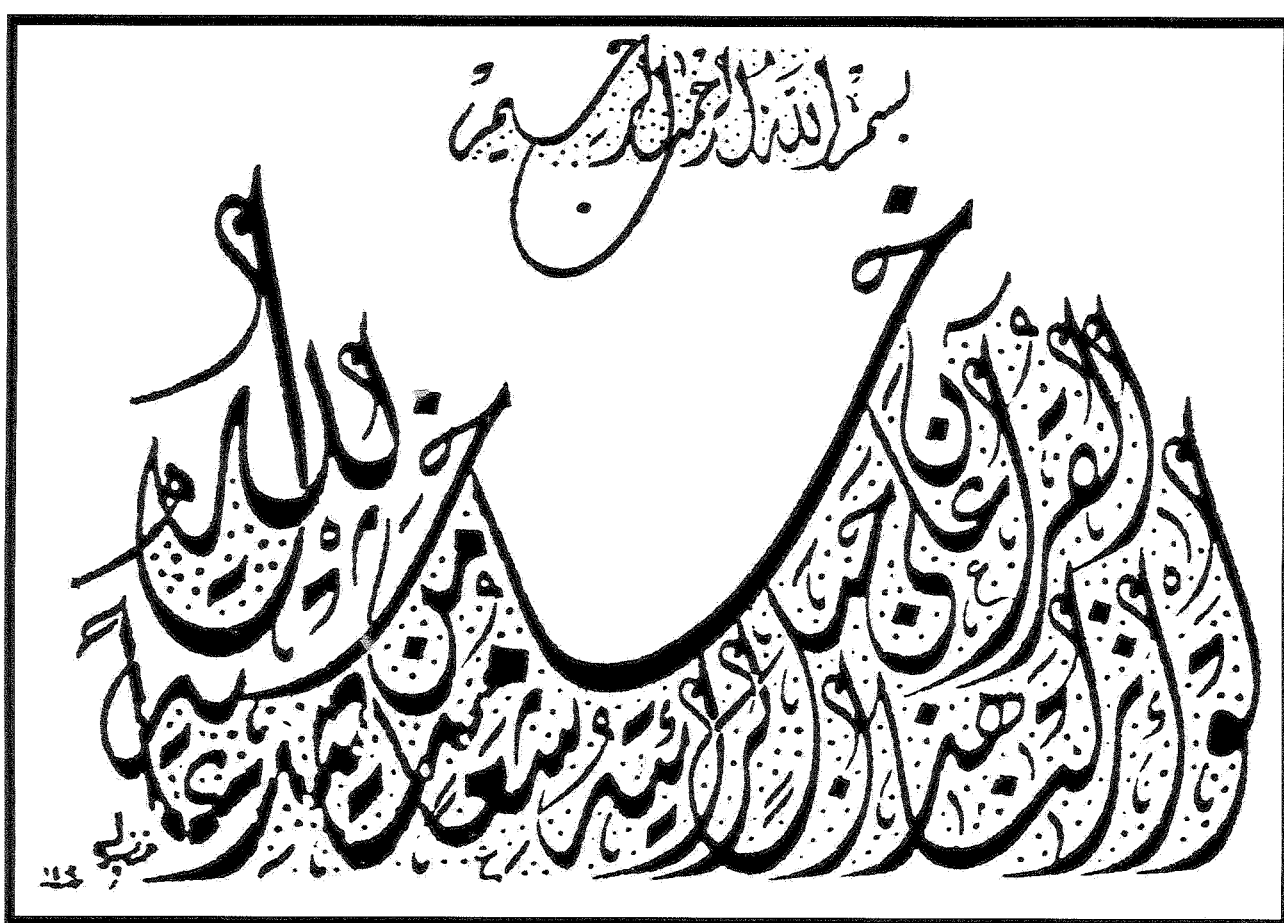 بسم الله الرحمن الرحيم
لو أنزلنا هذا القرءان على جبل لرأيته خشعا متصدعا من خشية الله